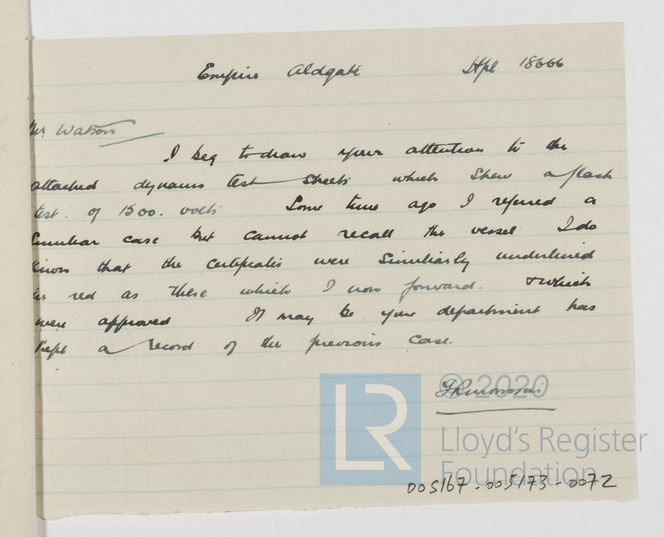 Empire Aldgate Hpl 18666
Mr. Watson
I beg to draw your attention to the
attached dynamo test sheets which shew a flash
test. of 1500. volts Some time ago I referred a
similar case but cannot recall the vessel I do
know that the certificates were similiarly underlined
in red as these which I now forward. & which
were approved It may be your department has
kept a record of the previous case.
© 2020
LR
Lloyd's Register
Foundation
005167-005173-0072